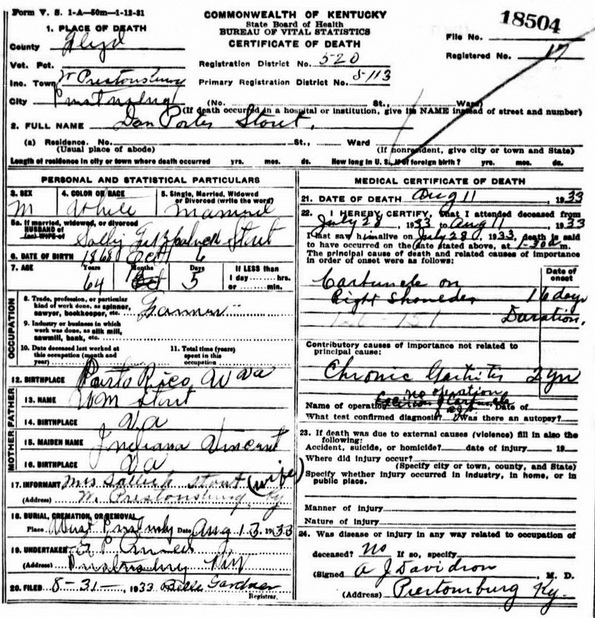 Form V. S. 1-A—50m—1-12-31
COMMONWEALTH OF KENTUCKY
State Board of Health
BUREAU OF VITAL STATISTICS
CERTIFICATE OF DEATH
18504
File No.
Registered No. 17
1. PLACE OF DEATH
County Floyd
Vot. Pct.
Registration District No. 520
Inc. Town W Prestonsburg
Primary Registration District No. 8113
City Prestonsburg (No. St., Ward)
(If death occurred in a hospital or institution, give its NAME instead of street and number)
2. FULL NAME Dan Porter Stout.
(a) Residence. No. St., Ward
(Usual place of abode) (If nonresident, give city or town and State)
Length of residence in city or town where death occurred yrs. mos. ds. How long in U. S., if of foreign birth? yrs. mos. ds.
PERSONAL AND STATISTICAL PARTICULARS
3. SEX M
4. COLOR OR RACE White
5. Single, Married, Widowed or Divorced (write the word) Married
5a. If married, widowed or divorced
HUSBAND of
(or) WIFE of Sally Stout
6. DATE OF BIRTH 1868 Oct 6
7. AGE 64 10 5
Years Mos Days If LESS than
1 day hrs.
or min.
OCCUPATION
8. Trade, profession, or particular kind of work done, as spinner, sawyer, bookkeeper, etc. Farmer
9. Industry or business in which work was done, as silk mill, sawmill, bank, etc.
10. Date deceased last worked at this occupation (month and year)
11. Total time (years) spent in this occupation
12. BIRTHPLACE Porto Rico, W Va
MOTHER FATHER
13. NAME Wm Stout
14. BIRTHPLACE Va
15. MAIDEN NAME Indiana Vincent
16. BIRTHPLACE Va
17. INFORMANT Mrs Sallie Stout (wife)
(Address) W. Prestonsburg Ky
18. BURIAL, CREMATION, OR REMOVAL
Place West Prestonsburg Date Aug 13, 1933
19. UNDERTAKER
(Address) Prestonsburg Ky
20. FILED 8-31- 1933 Gardner
Registrar.
MEDICAL CERTIFICATE OF DEATH
21. DATE OF DEATH Aug 11 1933
22. I HEREBY CERTIFY, that I attended deceased from
July 28, 1933 to Aug 11 1933
I last saw him alive on July 28, 1933, death is said
to have occurred on the date stated above, at m.
The principal cause of death and related causes of importance
in order of onset were as follows:
Date of onset
Carbuncle on
Right Shoulder 16 days
Duration.
Contributory causes of importance not related to
principal cause:
Chronic Gastritis 2 yr
no operation
Name of operation Date of
What test confirmed diagnosis? Was there an autopsy?
23. If death was due to external causes (violence) fill in also the
following:
Accident, suicide, or homicide? date of injury 19
Where did injury occur?
(Specify city or town, county, and State)
Specify whether injury occurred in industry, in home, or in
public place.
Manner of injury
Nature of injury
24. Was disease or injury in any way related to occupation of
deceased? No If so, specify
(Signed A J Davidson, M. D.
(Address) Prestonsburg Ky.